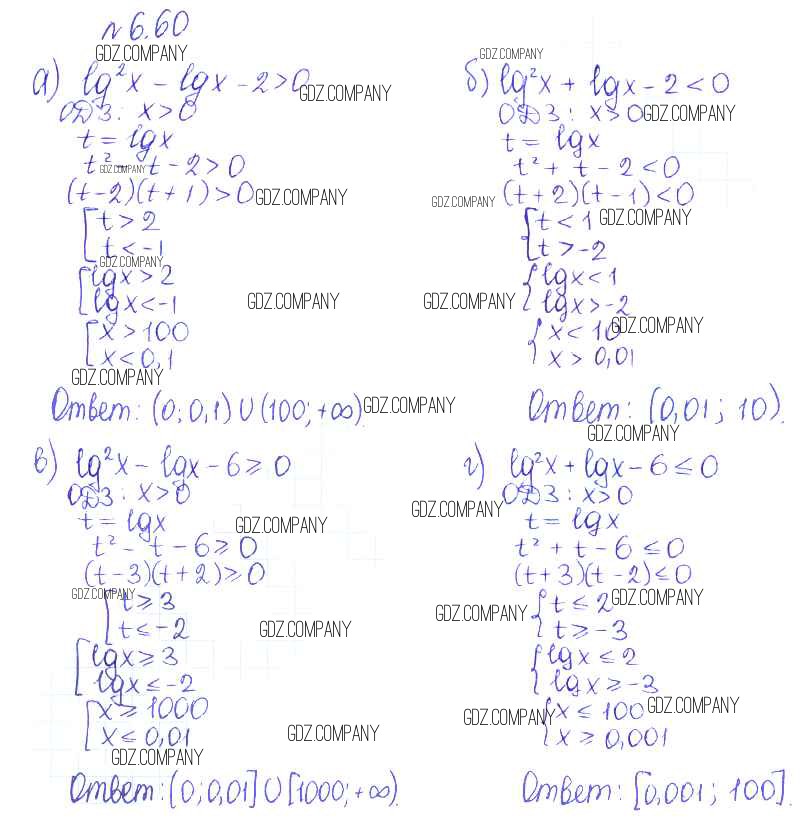 № 6.60
GDZ.COMPANY
а) lg²x - lgx - 2 > 0
GDZ.COMPANY
ОДЗ: x > 0
t = lgx
t² - t - 2 > 0
GDZ.COMPANY
(t-2)(t+1) > 0
GDZ.COMPANY
[ t > 2
t < -1
GDZ.COMPANY
[ lgx > 2
lgx < -1
GDZ.COMPANY
[ x > 100
x < 0,1
GDZ.COMPANY
Ответ: (0; 0,1) ∪ (100; +∞).
GDZ.COMPANY
GDZ.COMPANY
б) lg²x + lgx - 2 < 0
ОДЗ: x > 0
GDZ.COMPANY
t = lgx
t² + t - 2 < 0
GDZ.COMPANY
(t+2)(t-1) < 0
{ t < 1
GDZ.COMPANY
t > -2
{ lgx < 1
GDZ.COMPANY
lgx > -2
{ x < 10
GDZ.COMPANY
x > 0,01
Ответ: (0,01; 10).
GDZ.COMPANY
в) lg²x - lgx - 6 ≥ 0
ОДЗ: x > 0
t = lgx
GDZ.COMPANY
t² - t - 6 ≥ 0
(t-3)(t+2) ≥ 0
GDZ.COMPANY
[ t ≥ 3
t ≤ -2
GDZ.COMPANY
[ lgx ≥ 3
lgx ≤ -2
[ x ≥ 1000
x ≤ 0,01
GDZ.COMPANY
GDZ.COMPANY
Ответ: (0; 0,01] ∪ [1000; +∞).
г) lg²x + lgx - 6 ≤ 0
ОДЗ: x > 0
GDZ.COMPANY
t = lgx
t² + t - 6 ≤ 0
(t+3)(t-2) ≤ 0
{ t ≤ 2
GDZ.COMPANY
GDZ.COMPANY
t ≥ -3
{ lgx ≤ 2
lgx ≥ -3
{ x ≤ 100
GDZ.COMPANY
GDZ.COMPANY
x ≥ 0,001
Ответ: [0,001; 100].